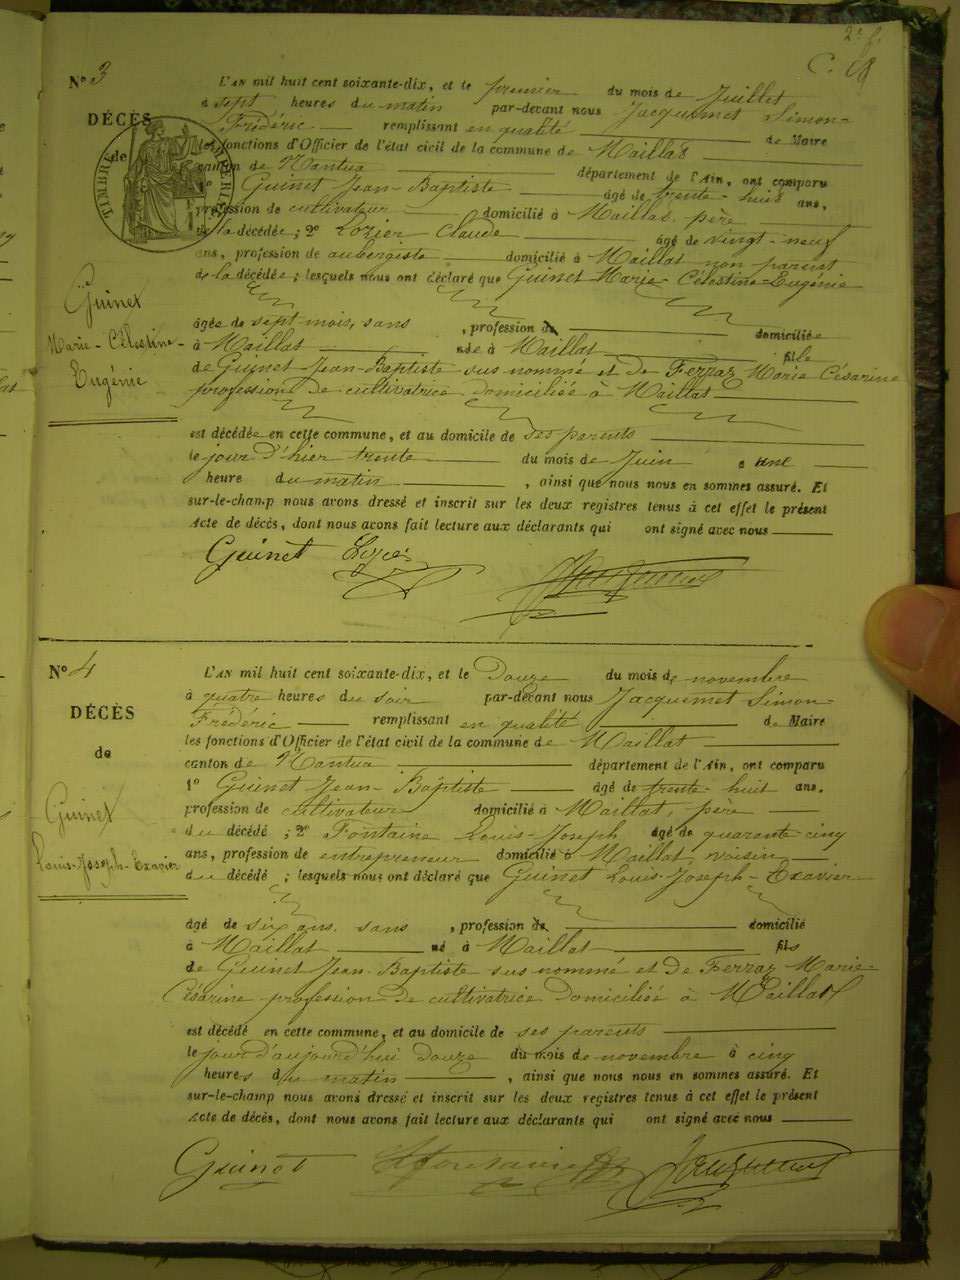 2e f.
C. G
N° 3
DÉCÈS
de
TIMBRE IMPÉRIAL
Guinet
Marie-Célestine-
Eugénie
L'AN mil huit cent soixante-dix, et le premier du mois de Juillet
à sept heures du matin par-devant nous Jacquemet Simon-
Frédéric remplissant en qualité de Maire
les fonctions d'Officier de l'état civil de la commune de Maillat
canton de Nantua département de l'Ain, ont comparu
1° Guinet Jean-Baptiste âgé de trente-huit ans,
profession de cultivateur domicilié à Maillat, père
de la décédée; 2° Lozier Claude âgé de vingt-neuf
ans, profession de aubergiste domicilié à Maillat non parent
de la décédée; lesquels nous ont déclaré que Guinet Marie Célestine-Eugénie
âgée de sept mois, sans , profession de domiciliée
à Maillat née à Maillat fille
de Guinet Jean-Baptiste sus nommé et de Ferraz Marie Césarine
profession de cultivatrice domiciliée à Maillat
est décédée en cette commune, et au domicile de ses parents
le jour d'hier trente du mois de Juin à une
heure du matin , ainsi que nous nous en sommes assuré. Et
sur-le-champ nous avons dressé et inscrit sur les deux registres tenus à cet effet le présent
Acte de décès, dont nous avons fait lecture aux déclarants qui ont signé avec nous
Guinet Lozier
N° 4
DÉCÈS
de
Guinet
Louis-Joseph-Exavier
L'AN mil huit cent soixante-dix, et le Douze du mois de novembre
à quatre heures du soir par-devant nous Jacquemet Simon-
Frédéric remplissant en qualité de Maire
les fonctions d'Officier de l'état civil de la commune de Maillat
canton de Nantua département de l'Ain, ont comparu
1° Guinet Jean-Baptiste âgé de trente-huit ans,
profession de cultivateur domicilié à Maillat, père
du décédé; 2° Fontaine Louis-Joseph âgé de quarante cinq
ans, profession de entrepreneur domicilié à Maillat, voisin
du décédé; lesquels nous ont déclaré que Guinet Louis-Joseph-Exavier
âgé de six ans, sans , profession de domicilié
à Maillat né à Maillat fils
de Guinet Jean-Baptiste sus nommé et de Ferraz Marie
Césarine profession de cultivatrice domiciliée à Maillat
est décédé en cette commune, et au domicile de ses parents
le jour d'aujourd'hui douze du mois de novembre à cinq
heures du matin , ainsi que nous nous en sommes assuré. Et
sur-le-champ nous avons dressé et inscrit sur les deux registres tenus à cet effet le présent
Acte de décès, dont nous avons fait lecture aux déclarants qui ont signé avec nous
Guinet